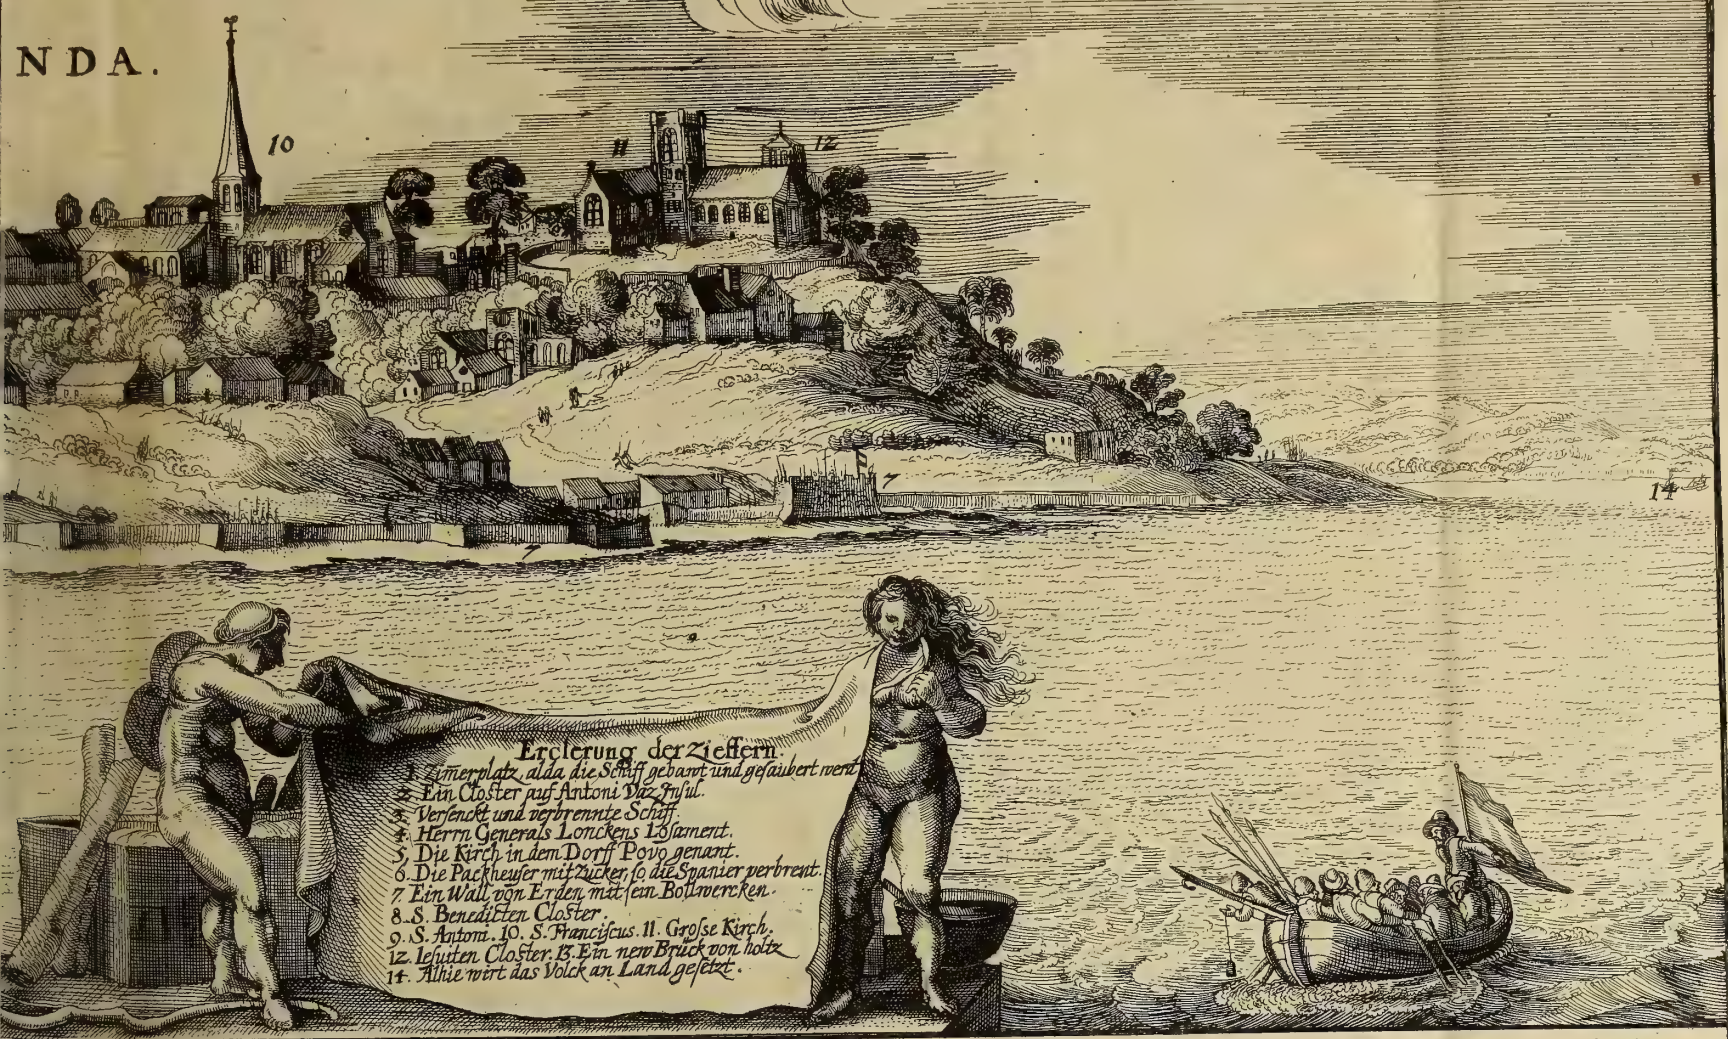 NDA.
10
11
12
7
14
7
9
Erclerung der Zieffern.
1. Zim̄erplatz, alda die Schiff gebawt und gesaubert werd
2. Ein Closter auf Antoni Vaz Insul.
3. Versenckt und verbrennte Schiff
4. Herrn Generals Lonckens Losament.
5. Die Kirch in dem Dorff Povo genant.
6. Die Packheuser mit Zucker, so die Spanier verbrent.
7. Ein Wall von Erden mit sein Bollwercken.
8. S. Benedicten Closter.
9. S. Antoni. 10. S. Franciscus. 11. Grosse Kirch.
12. Iesuiten Closter. 13. Ein new Brück von holtz
14. Alhie wirt das Volck an Land gesetzt.